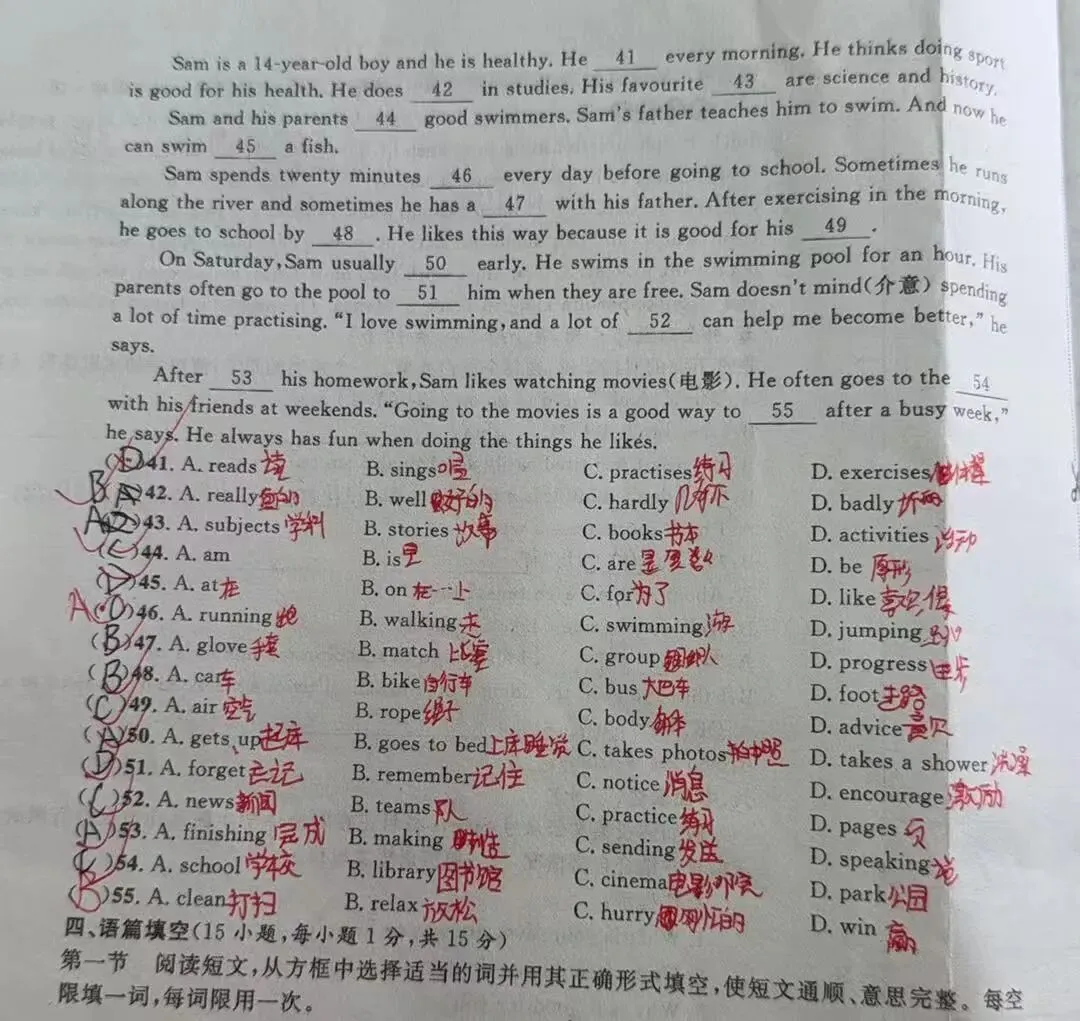 Sam is a 14-year-old boy and he is healthy. He 41 every morning. He thinks doing sport
is good for his health. He does 42 in studies. His favourite 43 are science and history.
Sam and his parents 44 good swimmers. Sam's father teaches him to swim. And now he
can swim 45 a fish.
Sam spends twenty minutes 46 every day before going to school. Sometimes he runs
along the river and sometimes he has a 47 with his father. After exercising in the morning,
he goes to school by 48 . He likes this way because it is good for his 49 .
On Saturday, Sam usually 50 early. He swims in the swimming pool for an hour. His
parents often go to the pool to 51 him when they are free. Sam doesn't mind(介意) spending
a lot of time practising. “I love swimming, and a lot of 52 can help me become better,” he
says.
After 53 his homework, Sam likes watching movies(电影). He often goes to the 54
with his friends at weekends. “Going to the movies is a good way to 55 after a busy week,”
he says. He always has fun when doing the things he likes.
(D)41. A. reads 读 B. sings 唱 C. practises 练习 D. exercises
B (A)42. A. really B. well C. hardly 几乎不 D. badly
A (D)43. A. subjects 学科 B. stories 故事 C. books 书本 D. activities 活动
(C)44. A. am B. is 是 C. are 是 D. be 原形
(D)45. A. at 在 B. on 在…上 C. for 为了 D. like 喜欢,像
A (C)46. A. running 跑 B. walking 走 C. swimming 游 D. jumping
(B)47. A. glove 手套 B. match 比赛 C. group D. progress 进步
(B)48. A. car 车 B. bike 自行车 C. bus 大巴车 D. foot 走路
(C)49. A. air 空气 B. rope 绳子 C. body 身体 D. advice 意见
(A)50. A. gets up 起床 B. goes to bed 上床睡觉 C. takes photos 拍照 D. takes a shower 洗澡
(D)51. A. forget 忘记 B. remember 记住 C. notice 消息 D. encourage 激励
(C)52. A. news 新闻 B. teams 队 C. practice 练习 D. pages 页
(A)53. A. finishing 完成 B. making 制造 C. sending 发送 D. speaking 说
(C)54. A. school 学校 B. library 图书馆 C. cinema 电影院 D. park 公园
(B)55. A. clean 打扫 B. relax 放松 C. hurry D. win 赢
四、语篇填空(15 小题,每小题 1 分,共 15 分)
第一节 阅读短文,从方框中选择适当的词并用其正确形式填空,使短文通顺、意思完整。每空
限填一词,每词限用一次。